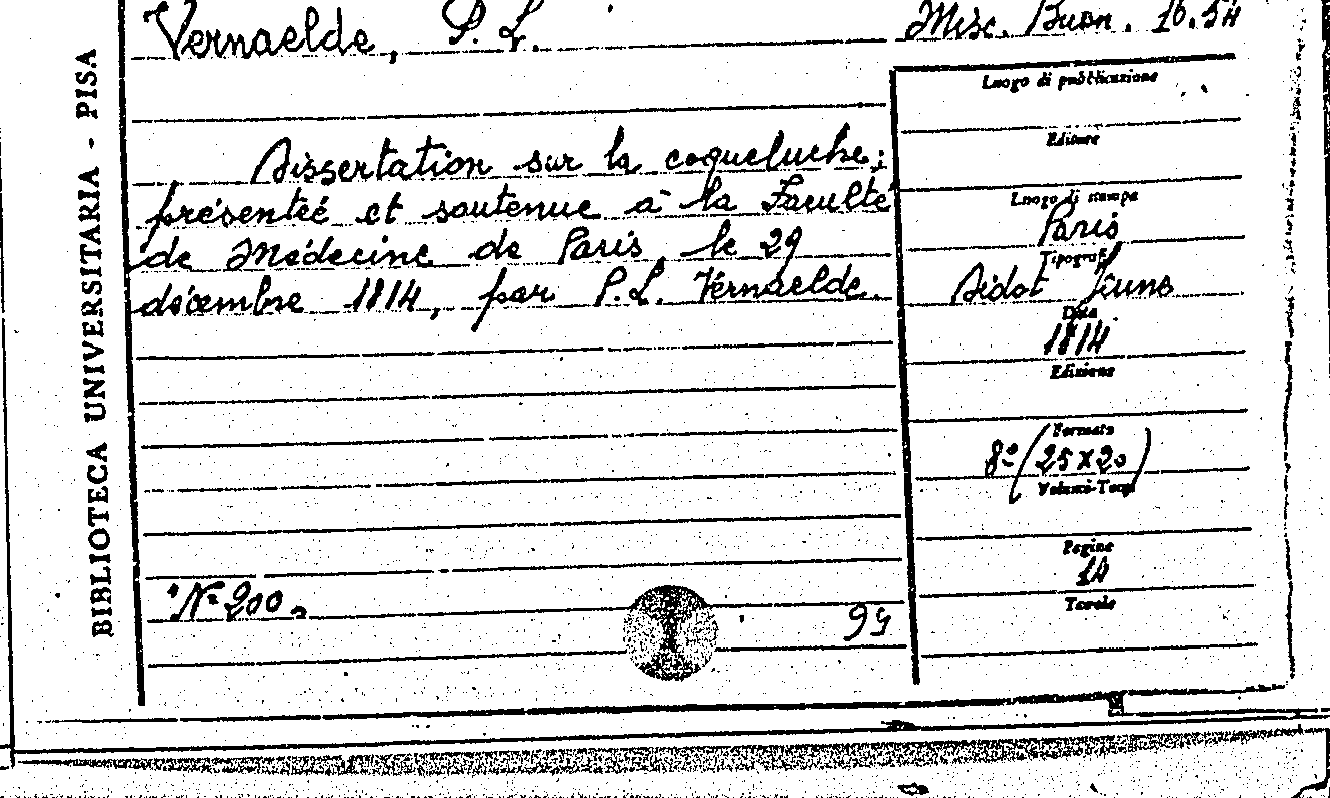 BIBLIOTECA UNIVERSITARIA - PISA
Vernaelde, P. L.
Misc. Buon. 16.54
Dissertation sur la coqueluche;
présentéé et soutenue à la Faculté
de Médecine de Paris, le 29
décembre 1814, par P.L. Vernaelde.
Luogo di pubblicazione
Editore
Luogo di stampa
Paris
Tipografo
Didot Jeune
Data
1814
Edizione
Formato
8º (25x20)
Volumi-Tomi
Pagine
14
Tavole
"Nº 200"